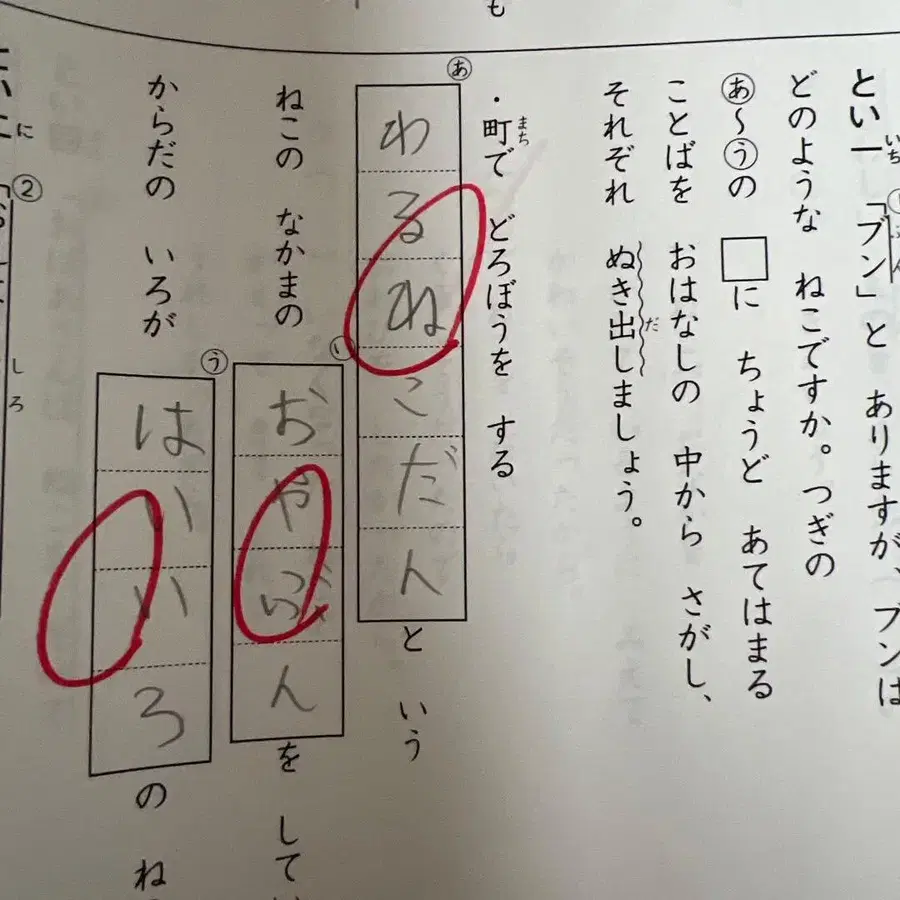 も
とい一 「ブン」と ありますが、ブンは
いち
ぶん
どのような ねこですか。つぎの
あ~うの □に ちょうど あてはまる
ことばを おはなしの 中から さがし、
それぞれ ぬき出しましょう。
だ
・町で どろぼうを する
まち
あ
わるねこだん
と いう
ねこの なかまの
い
おやぶん
を して
からだの いろが
う
はいいろ
の ね
②
しろ
に